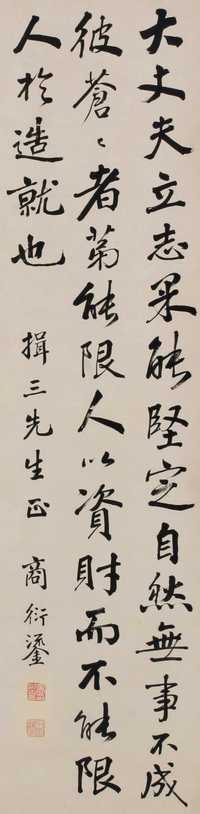 大丈夫立志果能堅定自然無事不成
彼蒼〻者第能限人以資財而不能限
人於造就也
揖三先生正
商衍鎏